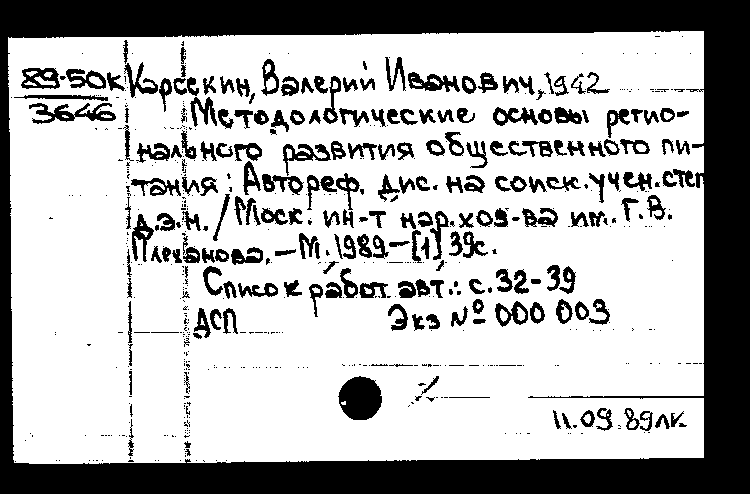 89-50к Карсекин, Валерий Иванович, 1942
3646 Методологические основы регио-
нального развития общественного пи-
тания : Автореф. дис. на соиск. учен. степ
д.э.н. / Моск. ин-т нар. хоз-ва им. Г.В.
Плеханова. — М. 1989. — [1] 39с.
Список работ авт.: с. 32-39
ДСП Экз № 000 003
11.09.89лк.